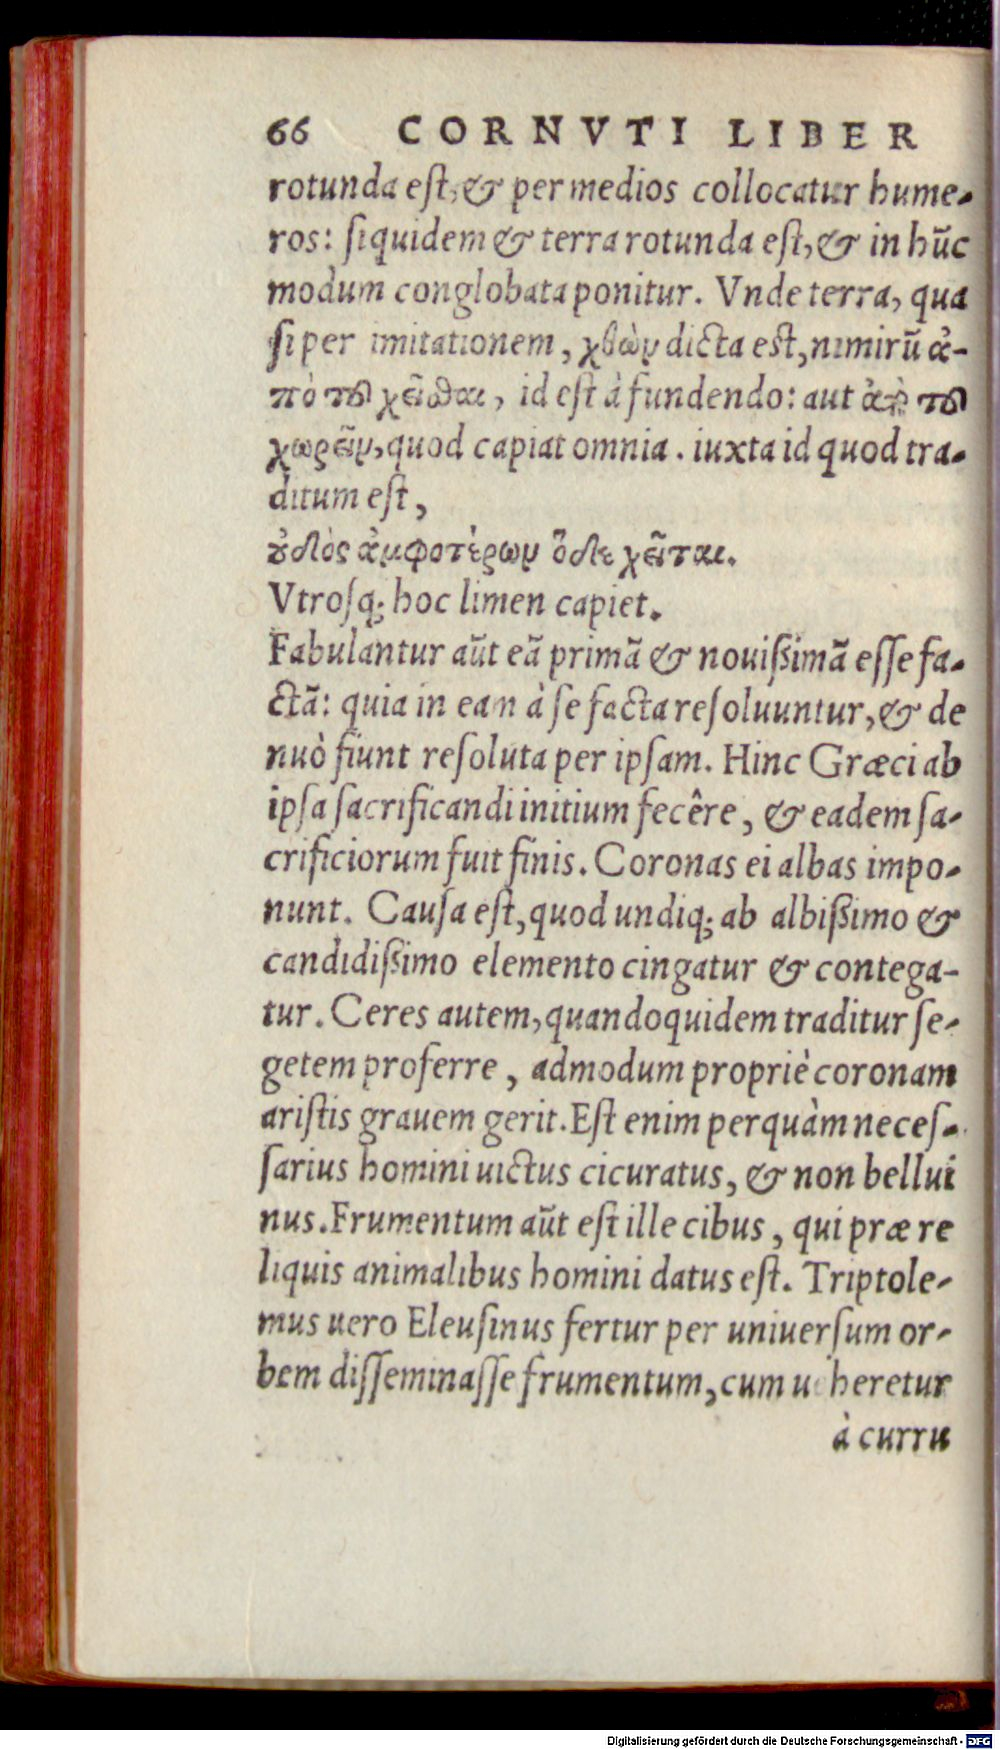 66 CORNVTI LIBER
rotunda eſt, & per medios collocatur hume-
ros: ſiquidem & terra rotunda eſt, & in hūc
modum conglobata ponitur. Vnde terra, qua
ſi per imitationem, χθὼν dicta est, nimirū ἀ-
πὸ τοῦ χεῖσθαι, id eſt à fundendo: aut ἀπὸ τοῦ
χωρεῖν, quod capiat omnia. iuxta id quod tra-
ditum eſt,
οὐδὸς ἀμφοτέρων ὅδε χεῖται.
Vtroſq; hoc limen capiet.
Fabulantur aūt eā primā & nouiſsimā eſſe fa-
ctā: quia in ean à ſe facta reſoluuntur, & de
nuò fiunt reſoluta per ipſam. Hinc Græci ab
ipſa ſacrificandi initium fecêre, & eadem ſa-
crificiorum fuit finis. Coronas ei albas impo-
nunt. Cauſa eſt, quod undiq; ab albiſsimo &
candidiſsimo elemento cingatur & contega-
tur. Ceres autem, quandoquidem traditur ſe-
getem proferre, admodum propriè coronam
ariſtis grauem gerit. Eſt enim perquàm neceſ-
ſarius homini uictus cicuratus, & non bellui
nus. Frumentum aūt eſt ille cibus, qui præ re
liquis animalibus homini datus eſt. Triptole-
mus uero Eleuſinus fertur per uniuerſum or-
bem diſſeminaſſe frumentum, cum ueheretur
à curru
Digitalisierung gefördert durch die Deutsche Forschungsgemeinschaft - DFG